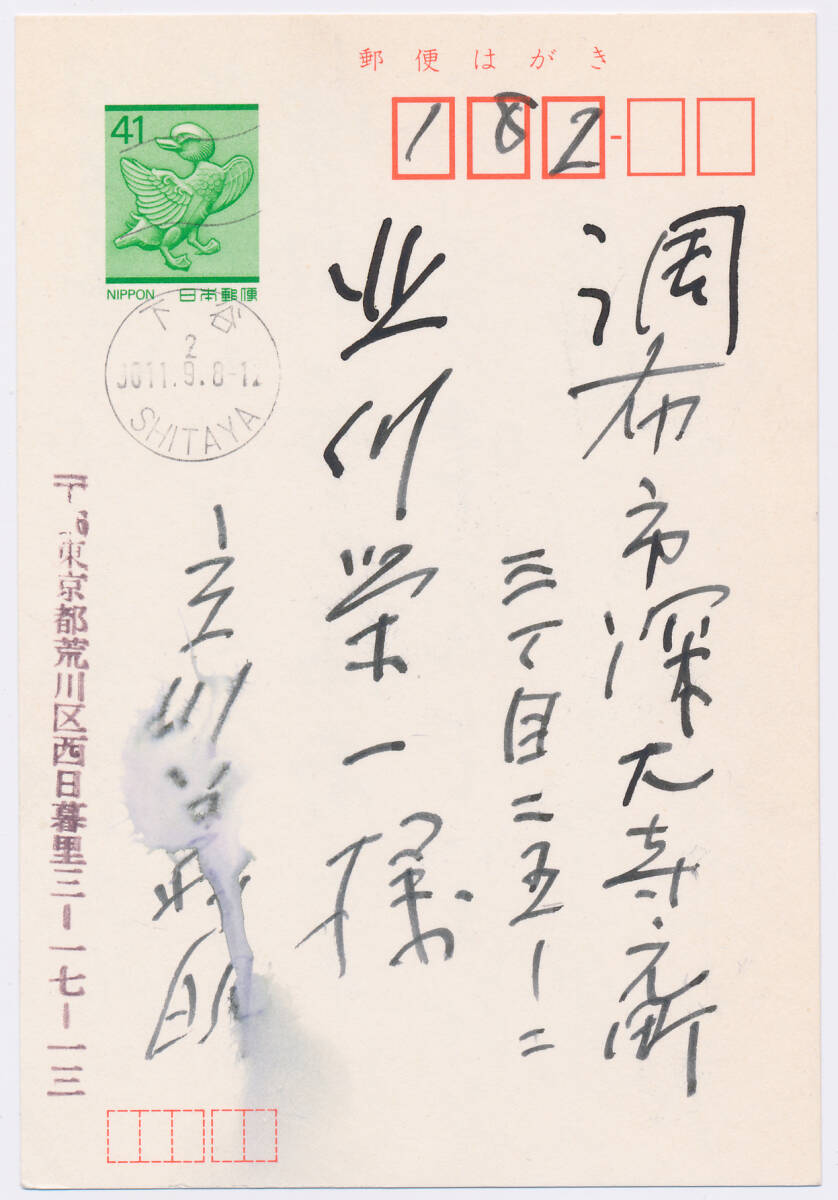 郵便はがき
182-
41
NIPPON 日本郵便
下谷
2
11.9.8-12
SHITAYA
調布市深大寺元町
三丁目二五ー二
並川栄一様
古川
東京都荒川区西日暮里三ー一七ー一三